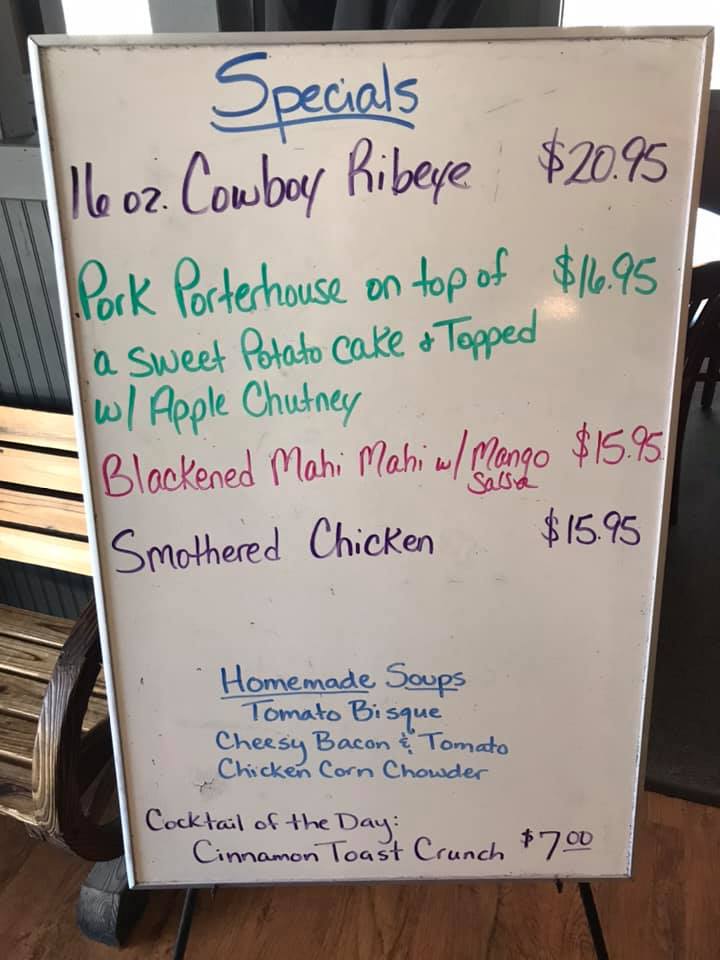 Specials
16 oz. Cowboy Ribeye $20.95
Pork Porterhouse on top of $16.95
a sweet Potato cake & Topped
w/ Apple Chutney
Blackened Mahi Mahi w/ Mango $15.95
Salsa
Smothered Chicken $15.95
Homemade Soups
Tomato Bisque
Cheesy Bacon & Tomato
Chicken Corn Chowder
Cocktail of the Day:
Cinnamon Toast Crunch $7.00